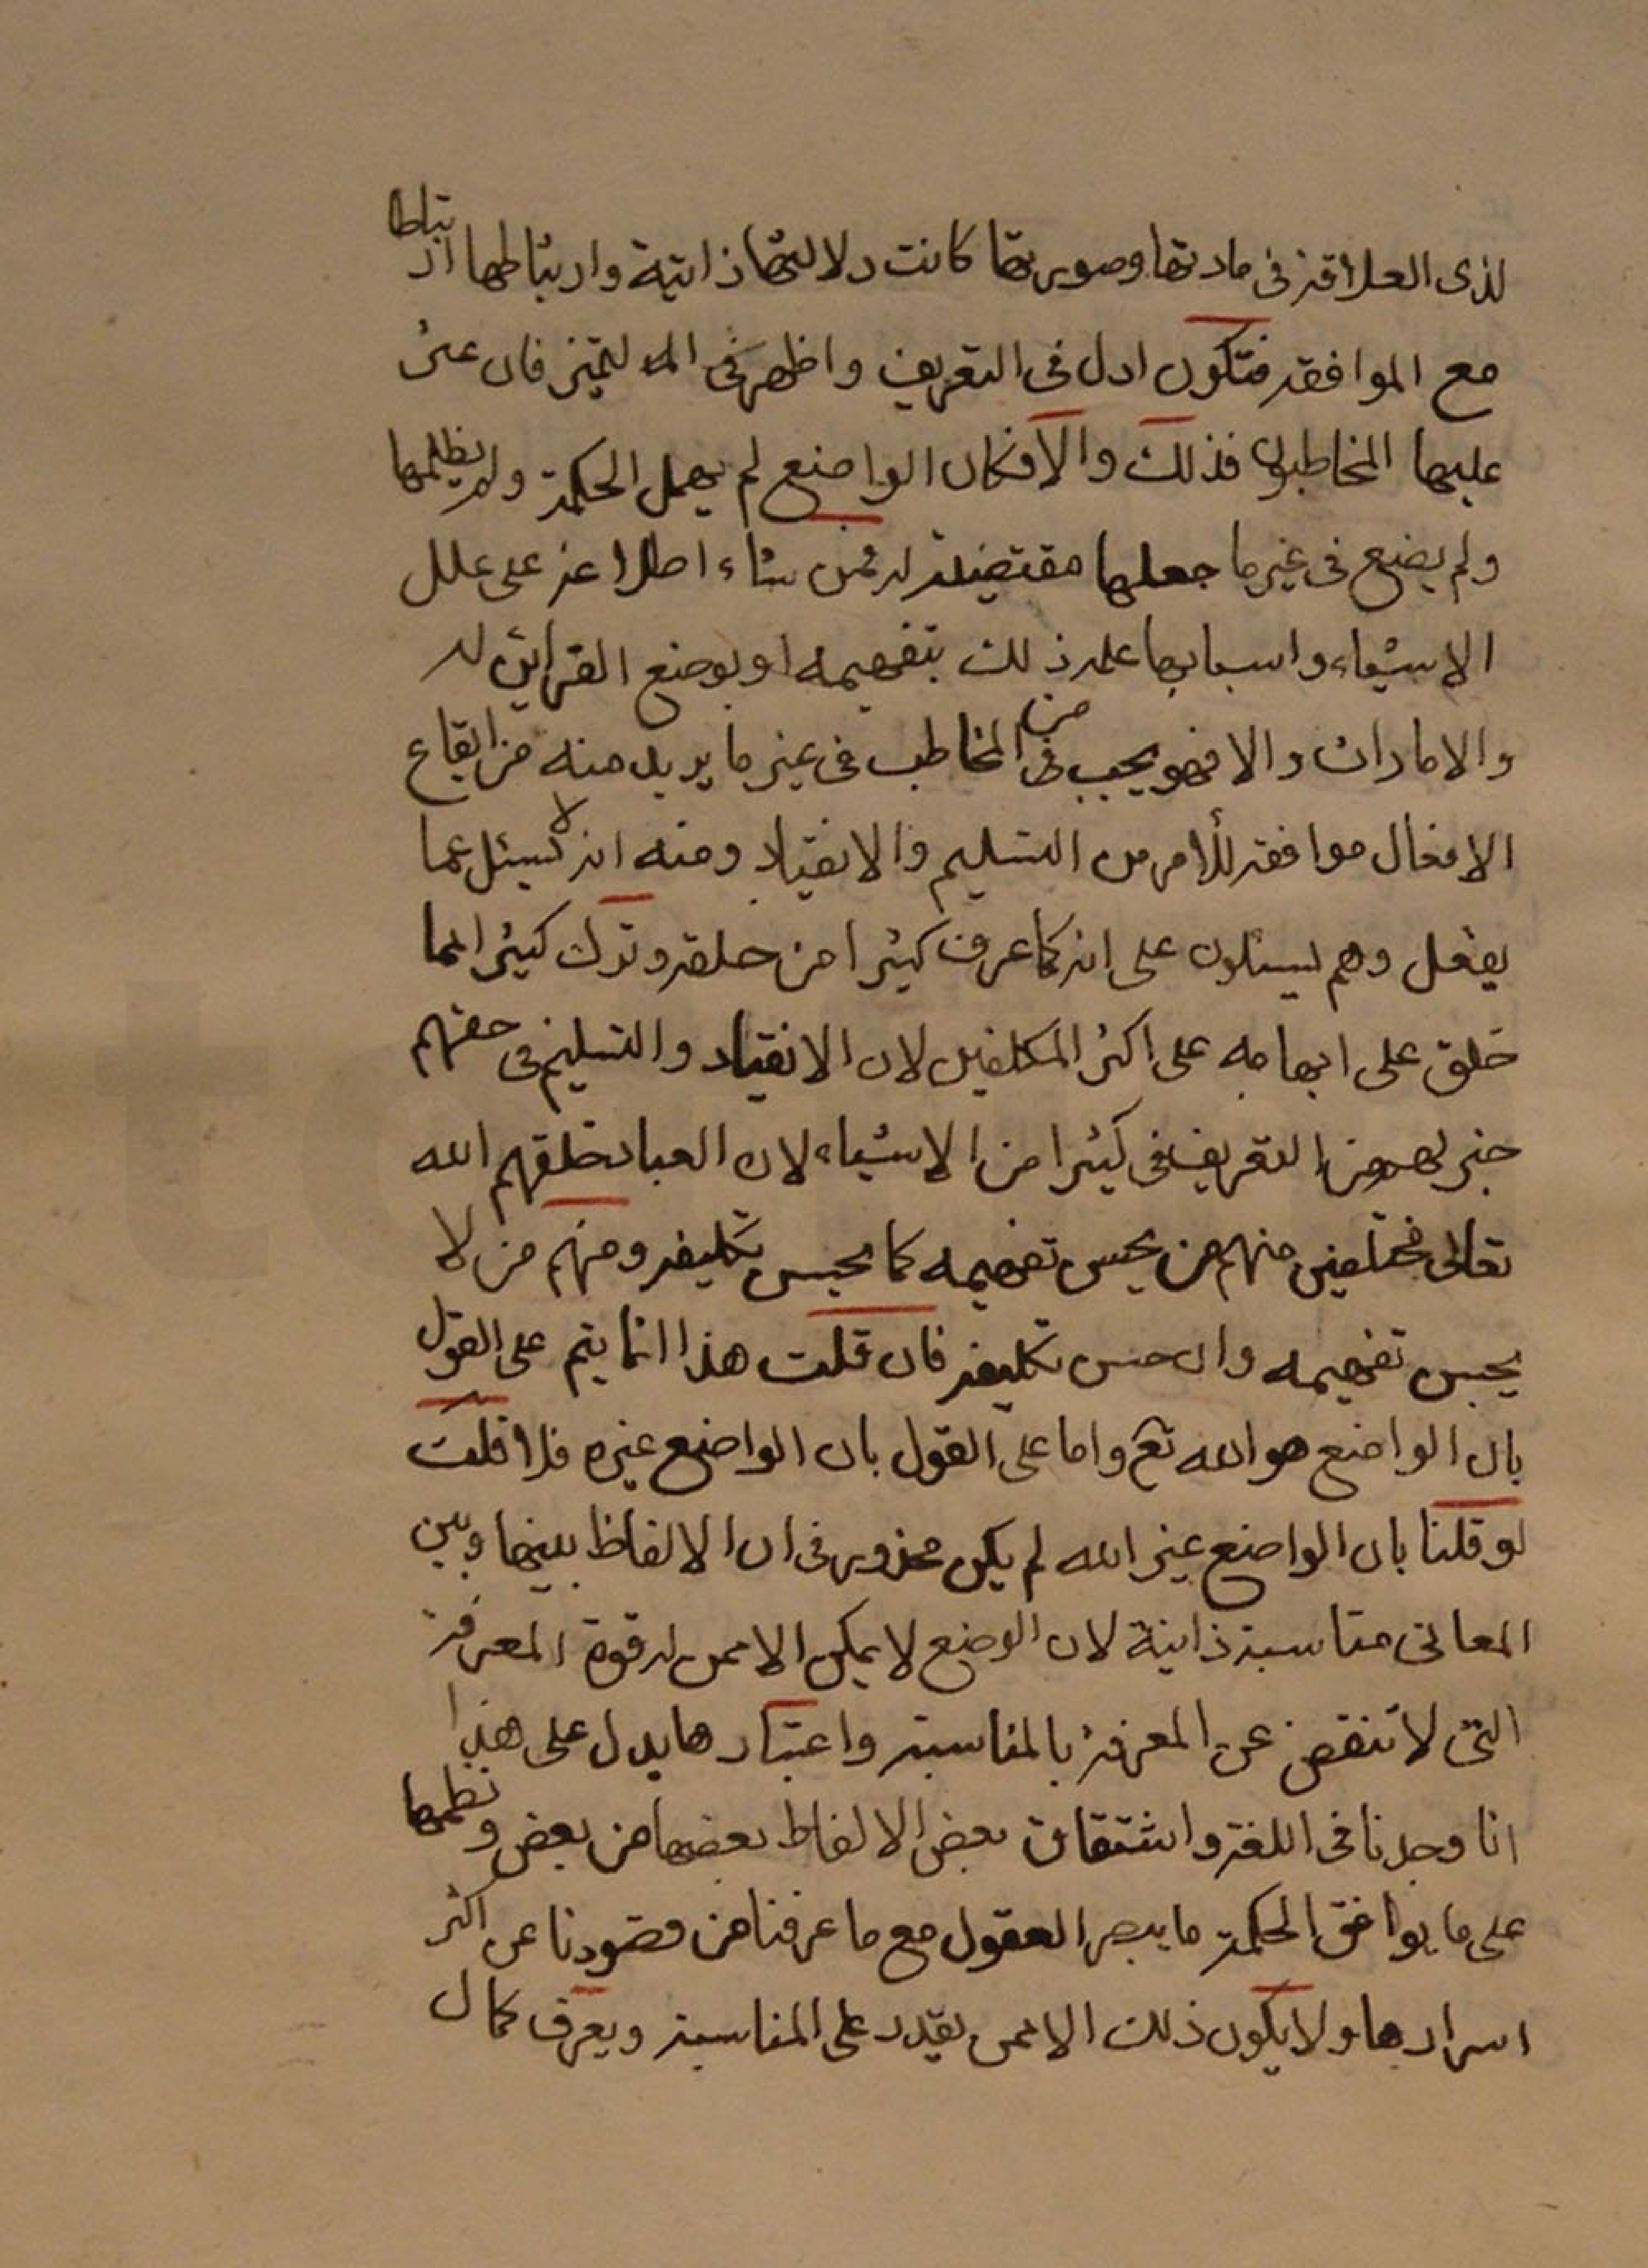 لذى العلاقة فى مادتها وصورتها كانت دلالتها ذاتية وارتباطها ارتباطا
مع الموافقة فتكون ادل فى التعريف واظهر فى التميز فان عثر
عليها المخاطبون فذلك والا فكان الواضع لم يهمل الحكمة ولم يظلمها
ولم يضع فى غير ما جعلها مقتضية له فمن شاء اطلاعه على علل
الاشياء واسبابها علمه ذلك بتفهيمه او بوضع القرائن له
والامارات والا فهو يحب من المخاطب فى غير ما يريد منه من ايقاع
الافعال موافقة للأمر من التسليم والانقياد ومنه انه لا يسئل عما
يفعل وهم يسئلون على انه كما عرف كثيرا من خلقه وترك كثيرا مما
خلق على ابهامه على اكثر المكلفين لان الانقياد والتسليم فى حقهم
خير لهم من التعريف فى كثيرا من الاشياء لان العباد خلقهم الله
تعالى مختلفين منهم من يحسن تفهيمه كما يحسن تكليفه ومنهم من لا
يحسن تفهيمه وان حسن تكليفه فان قلت هذا انما يتم على القول
بان الواضع هو الله تع واما على القول بان الواضع غيره فلا قلت
لو قلنا بان الواضع غير الله لم يكن محذور فى ان الالفاظ بينها وبين
المعانى مناسبة ذاتية لان الوضع لا يمكن الا ممن له قوة المعرفة
التى لا تنقص عن المعرفة بالمناسبة واعتبارها يدل على هذا
انا وجدنا فى اللغة واشتقاق بعض الالفاظ بعضها من بعض ونظمها
على ما يوافق الحكمة ما يبهر العقول مع ما عرفنا من قصورنا عن اكثر
اسرارها ولا يكون ذلك الا ممن يقدر على المناسبة ويعرف كمال